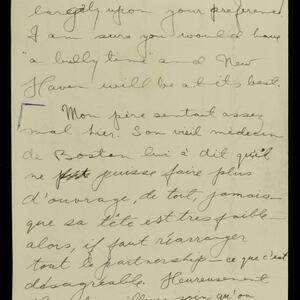 largely upon your preference
I am sure you would have
"a bully time" and New
Haven will be at its best.
Mon père sentait assez
mal hier. Son vieil médecin
de Boston lui à dit qu'il
ne puisse faire plus
d'ouvrage, de tout, jamais-
que sa tête est tres faible-
alors, if faut réarranger
tout le partnership - ce que c'est
désagreable. Heureusement
soin qu'on